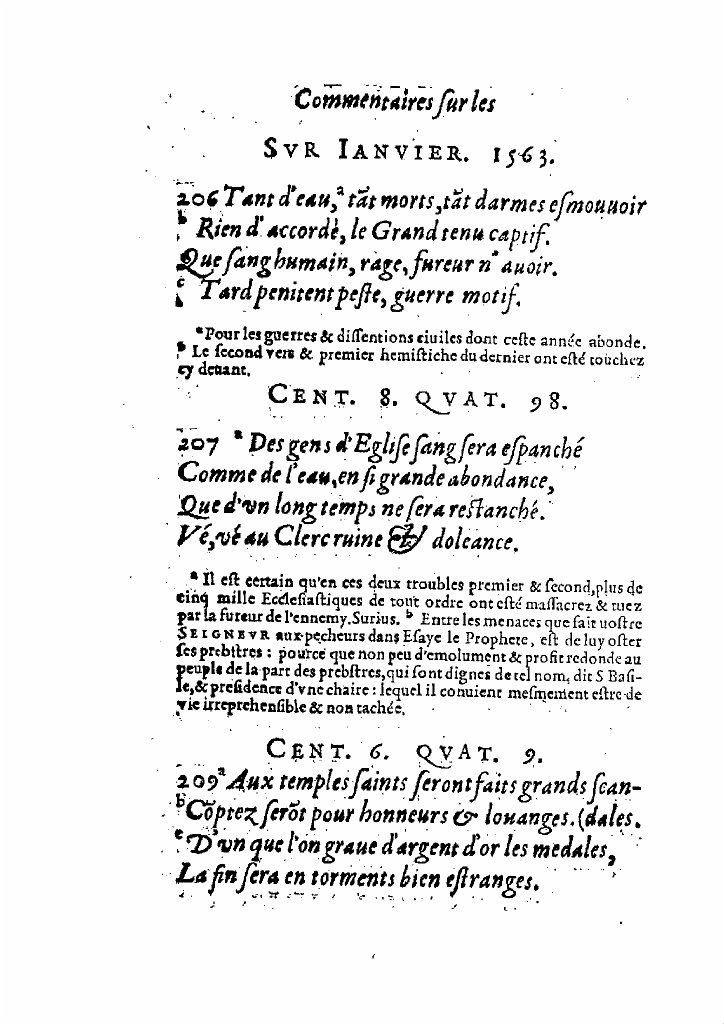 Commentaires ſur les
SVR IANVIER. 1563.
206 Tant d'eau,ᵃ tāt morts, tāt darmes eſmouuoir
ᵇ Rien d'accordé, le Grand tenu captif.
Que ſang humain, rage, fureur n'auoir.
ᶜ Tard penitent peſte, guerre motif.
ᵃ Pour les guerres & diſſentions ciuiles dont ceſte année abonde.
ᵇ Le ſecond vers & premier hemiſtiche du dernier ont eſté touchez
cy deuant.
CENT. 8. QVAT. 98.
207 ᵃ Des gens d'Egliſe ſang ſera eſpanché
Comme de l'eau, en ſi grande abondance,
Que d'vn long temps ne ſera reſtanché.
Vé, vé au Clerc ruine & doleance.
ᵃ Il eſt certain qu'en ces deux troubles premier & ſecond, plus de
cinq mille Eccleſiaſtiques de tout ordre ont eſté maſſacrez & tuez
par la fureur de l'ennemy. Surius. ᵇ Entre les menaces que fait uoſtre
SEIGNEVR aux pecheurs dans Eſaye le Prophete, eſt de luy oſter
ſes prebſtres : pource que non peu d'emolument & profit redonde au
peuple de la part des prebſtres, qui ſont dignes de tel nom, dit S Baſi-
le, & preſidence d'vne chaire : lequel il conuient meſmement eſtre de
vie irreprehenſible & non tachée.
CENT. 6. QVAT. 9.
209 ᵃ Aux temples ſaints ſeront faits grands ſcan-
ᵇ Cōptez ſerōt pour honneurs & louanges. (dales.
ᶜ D'vn que l'on graue d'argent d'or les medales,
La fin ſera en torments bien eſtranges.